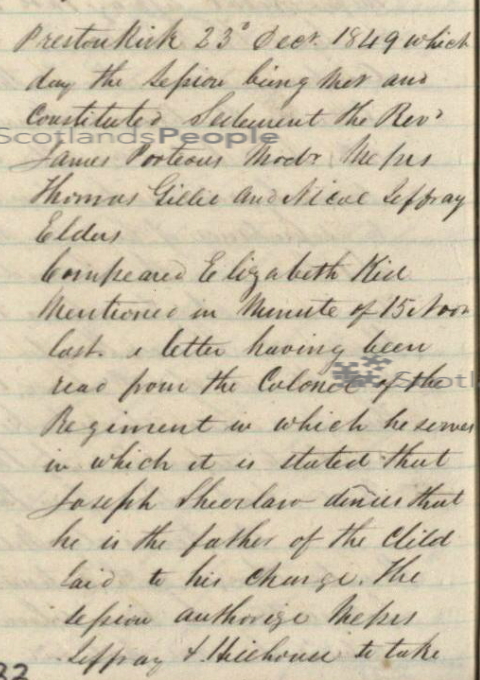 Prestonkirk 23d Decr. 1849 which
day the Session being met and
Constituted Sederunt the Revd
ScotlandsPeople
James Porteous Modr, Messrs
Thomas Gillie and Nicol Jeffray
Elders
Compeared Elizabeth Kid
Mentioned in Minute of 15 Novr
last. a letter having been
read from the Colonel of the
Scotl
Regiment in which he serves
in which it is stated that
Joseph Sheerlaw denies that
he is the father of the Child
laid to his charge. The
Session authorize Messrs
Jeffray & to take
32